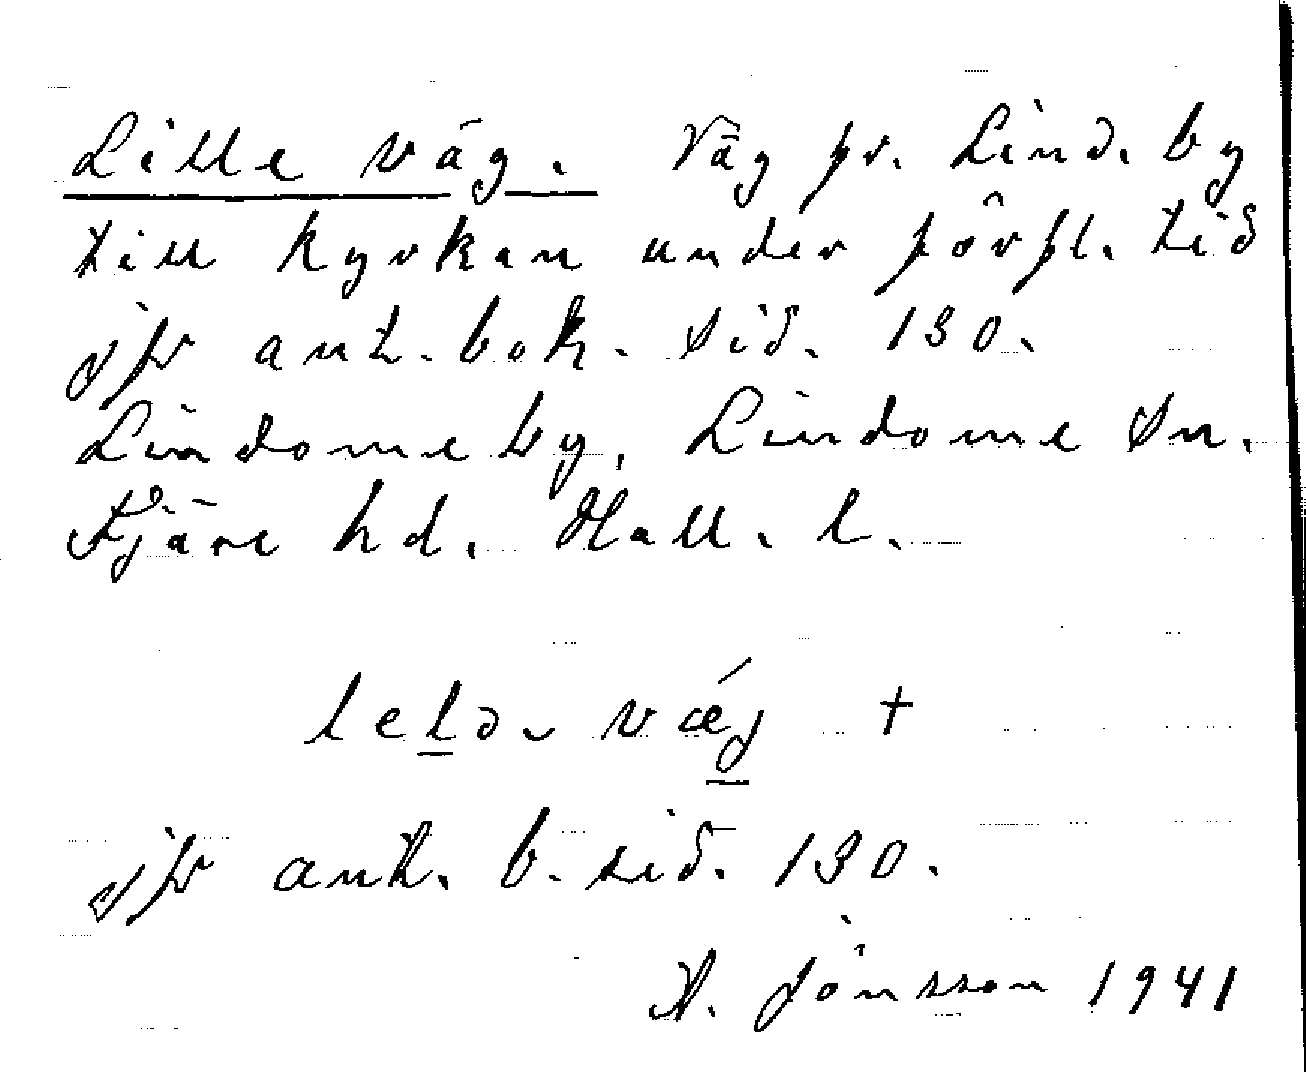 Lille väg. Väg fr. Lind. by
till kyrkan under förfl. tid
jfr ant. bok. sid. 130.
Lindome by, Lindome sn.
Fjäre hd. Hall. l.
vǽg +
jfr ant. b. sid. 130.
A. Jönsson 1941